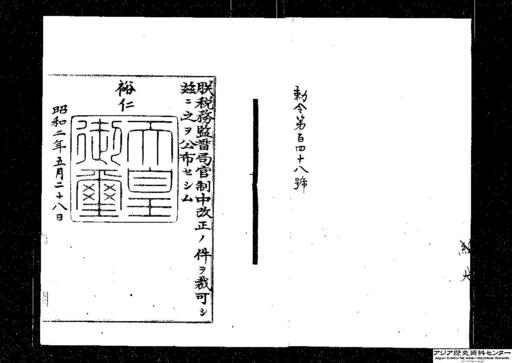 勅令第百四十八號
朕税務監督局官制中改正ノ件ヲ裁可シ
茲ニ之ヲ公布セシム
裕仁
天皇御璽
昭和二年五月二十八日
アジア歴史資料センター
Japan Center for Asian Historical Records